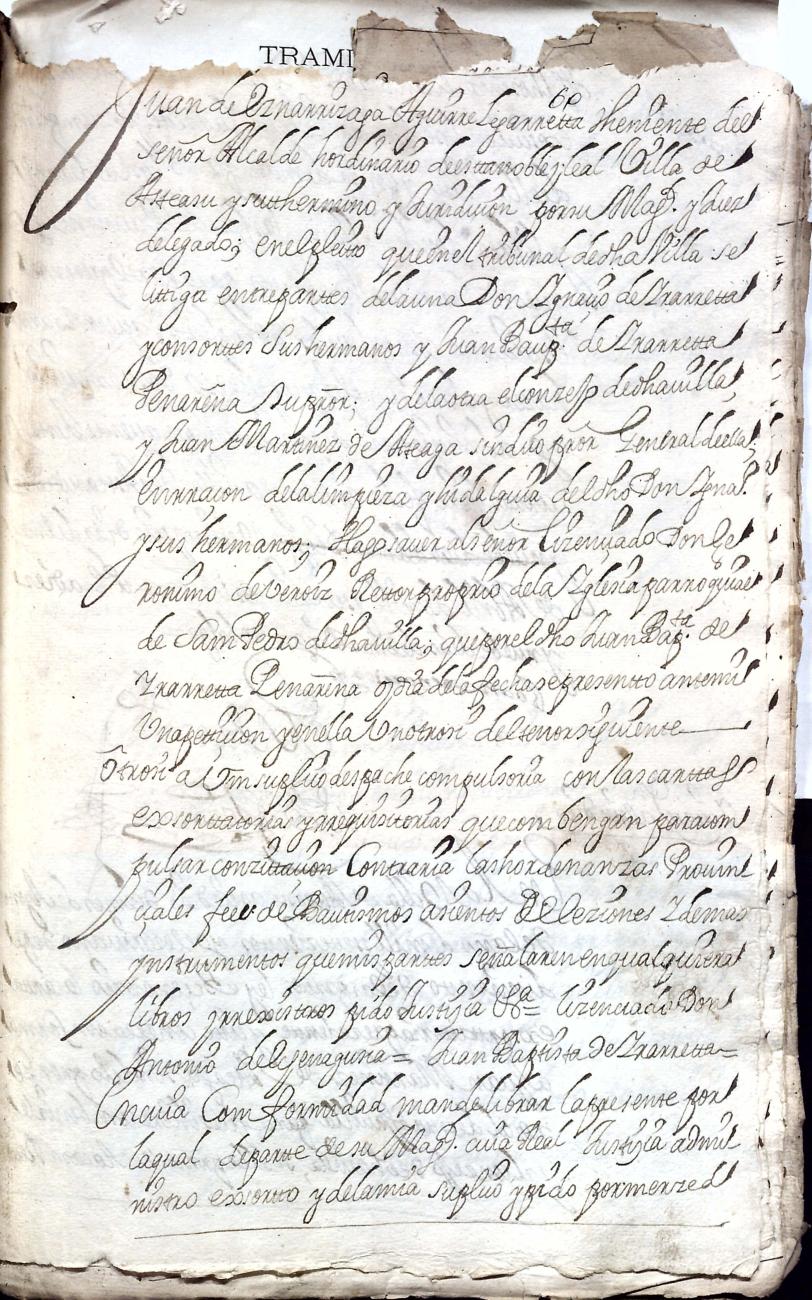 TRAMI
60
Juan de Yznarrizaga Aguirre Leyarretta theniente del
señor Alcalde hordinario de esta noble y leal Villa de
Atteasu y su thermino y Juridicion por su Magd. y Juez
delegado; en el pleito que en el tribunal de dha Villa se
litiga entre partes de la una Don Ygnacio de Yrarretta
y consortes sus hermanos y Juan Bapta de Yrarretta
Penarena su pror; y de la otra el conzejo de dha villa,
y Juan Martinez de Atteaga sindico pror General de ella,
en rraçon de la limpieza y hidalguia del dho Don Ygnaº
y sus hermanos; Hago saver al señor lizenciado Don Ge
ronimo de Veroiz Rettor proprio de la Yglesia parroquial
de Sam Pedro de dha villa; que por el dho Juan Bapta de
Yrarretta Penarena oy dia de la fecha se presentto ante mi
Una pettiçion y en ella Un otrosi del tenor siguiente
Otrosi a Vm suplico despache compulsoria con las carttas
exsorttatorias y rrequisitorias que combengan para com
pulsar con zitacion Contraria las hordenanzas Provin
ciales fee de Bautismos asientos de eleziones Y demas
ynstrumentos que mis partes señalaren en qualquiera
libros y rrexistros pido Justiçia &a = lizenciado Don
Antonio de = Juan Baptista de Yrarretta =
En cuia Comformidad mande librar la presente por
la qual de parte de su Magd. cuia Real Justiçia admi
nistro exsorto y de la mia suplico y pido por merzed